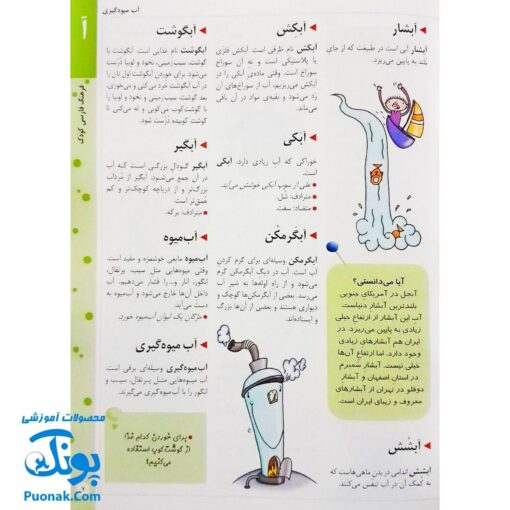 آب میوه‌گیری
آ
فرهنگ فارسی کودک
آبشار
آبشار آبی است در طبیعت که از جای
بلند به پایین می‌ریزد.
آیا می‌دانستی؟
آنجل در آمریکای جنوبی
بلندترین آبشار دنیاست.
آب این آبشار از ارتفاع خیلی
زیادی به پایین می‌ریزد. در
ایران هم آبشارهای زیادی
وجود دارد. اما ارتفاع آن‌ها
خیلی نیست. آبشار سمیرم
در استان اصفهان و آبشار
دوقلو در تهران از آبشارهای
معروف و زیبای ایران است.
آبشش
آبشش اندامی در بدن ماهی‌هاست که
به کمک آن در آب تنفس می‌کنند.
آبکش
آبکش نام ظرفی است. آبکش فلزی
یا پلاستیکی است و ته آن سوراخ
سوراخ است. وقتی ماده‌ی آبکی را در
آبکش می‌ریزیم، آب از سوراخ‌های آن
رد می‌شود و بقیه‌ی مواد در آن باقی
می‌ماند.
آبکی
خوراکی که آب زیادی دارد، آبکی
است.
علی از سوپ آبکی خوشش می‌آید.
• مترادف: شل.
• متضاد: سفت.
آبگرمکن
آبگرمکن وسیله‌ای برای گرم کردن
آب است. آب در دیگ آبگرمکن گرم
می‌شود و از راه لوله‌ها به شیر آب
می‌رسد. بعضی از آبگرمکن‌ها کوچک و
دیواری هستند و بعضی از آن‌ها بزرگ
و ایستاده‌اند.
آبگوشت
آبگوشت نام غذایی است. آبگوشت با
گوشت، سیب‌زمینی، نخود و لوبیا درست
می‌شود. برای خوردن آبگوشت اول نان را
در آب آبگوشت خرد می‌کنی و می‌خوری.
بعد گوشت، سیب‌زمینی و نخود و لوبیا را
با گوشت‌کوب می‌کوبی و له می‌کنی تا
گوشت کوبیده درست شود.
آبگیر
آبگیر گودال بزرگی است که آب
در آن جمع می‌شود. آبگیر از مرداب
بزرگ‌تر و از دریاچه کوچک‌تر و کم
عمق‌تر است.
• مترادف: برکه.
آب‌میوه
آب‌میوه مایعی خوشمزه و مفید است.
وقتی میوه‌هایی مثل سیب، پرتقال،
انگور، انار و... را فشار می‌دهیم، آب
داخل آن‌ها خارج می‌شود و آب‌میوه به
دست می‌آید.
مژگان یک لیوان آب‌میوه خورد.
آب میوه‌گیری
آب میوه‌گیری وسیله‌ای برقی است.
آب میوه‌هایی مثل پرتقال، سیب و
انگور را با آب میوه‌گیری می‌گیرند.
برای خوردن کدام غذا
از گوشت‌کوب استفاده
می‌کنیم؟
محصولات آموزشی
پونک
Puonak.Com